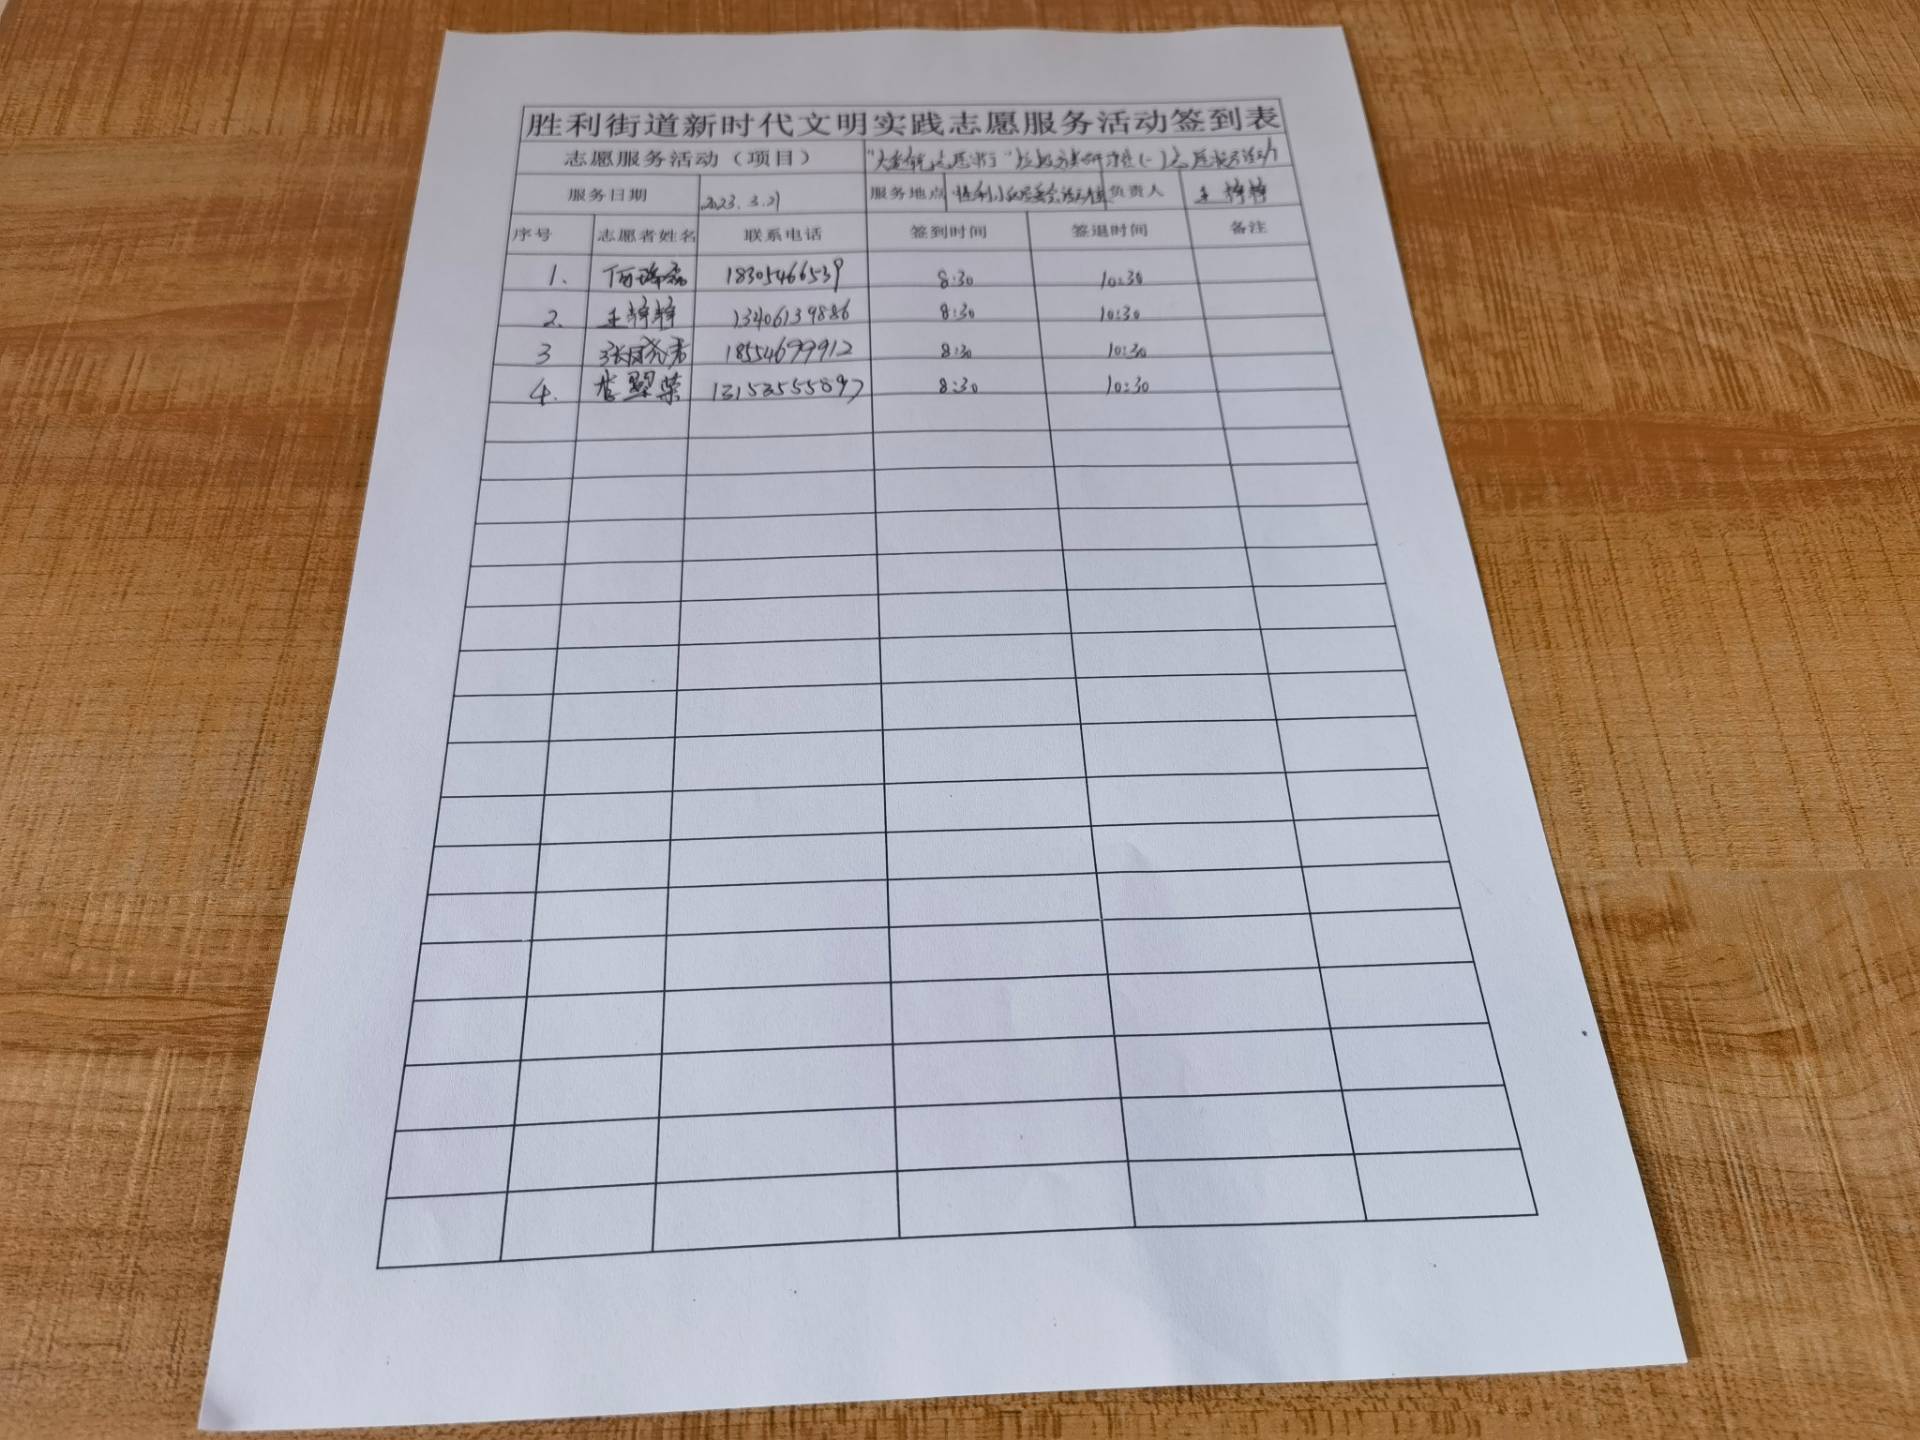 胜利街道新时代文明实践志愿服务活动签到表
志愿服务活动（项目）
服务日期 2023.3.21 服务地点 负责人 王婷婷
序号 志愿者姓名 联系电话 签到时间 签退时间 备注
1. 18305466539 8:30 10:30
2. 王婷婷 13406139886 8:30 10:30
3 18554699912 8:30 10:30
4. 13153555897 8:30 10:30